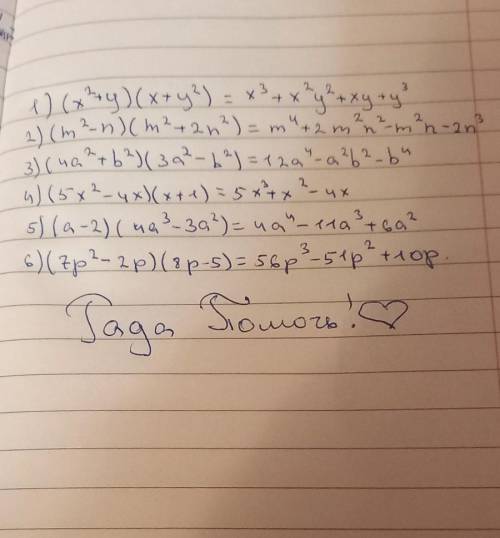 1) (x²+y)(x+y²) = x³+x²y²+xy+y³
2) (m²-n)(m²+2n²) = m⁴+2m²n²-m²n-2n³
3) (4a²+b²)(3a²-b²)=12a⁴-a²b²-b⁴
4) (5x²-4x)(x+1)=5x³+x²-4x
5) (a-2)(4a³-3a²)=4a⁴-11a³+6a²
6) (7p²-2p)(8p-5)=56p³-51p²+10p.
Рада Помочь!♡